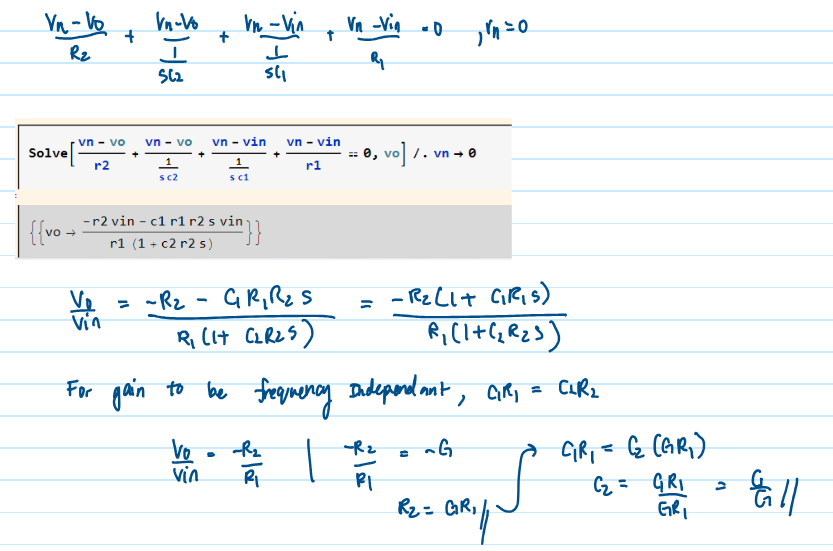 (Vn - Vo)/R2 + (Vn - Vo)/(1/SC2) + (Vn - Vin)/(1/SC1) + (Vn - Vin)/R1 = 0 , Vn = 0
Solve[(vn - vo)/r2 + (vn - vo)/(1/(s c2)) + (vn - vin)/(1/(s c1)) + (vn - vin)/r1 == 0, vo] /. vn → 0
{{vo → (-r2 vin - c1 r1 r2 s vin)/(r1 (1 + c2 r2 s))}}
Vo/Vin = (-R2 - C1R1R2 S)/(R1 (1+ C2R2S)) = (-R2(1+ C1R1S))/(R1(1+C2R2S))
For gain to be frequency Independant, C1R1 = C2R2
Vo/Vin = -R2/R1 | -R2/R1 = -G
R2 = GR1 //
C1R1 = C2 (GR1)
C2 = C1R1/GR1 = C1/G //